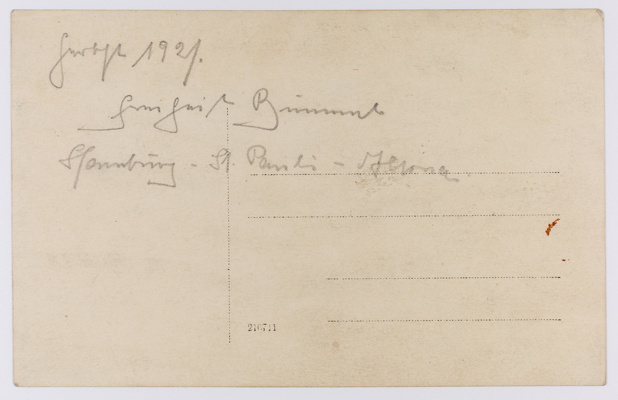 Herbst 1921.
Freiheit Bummel
Hamburg - St. Pauli - Altona
210741